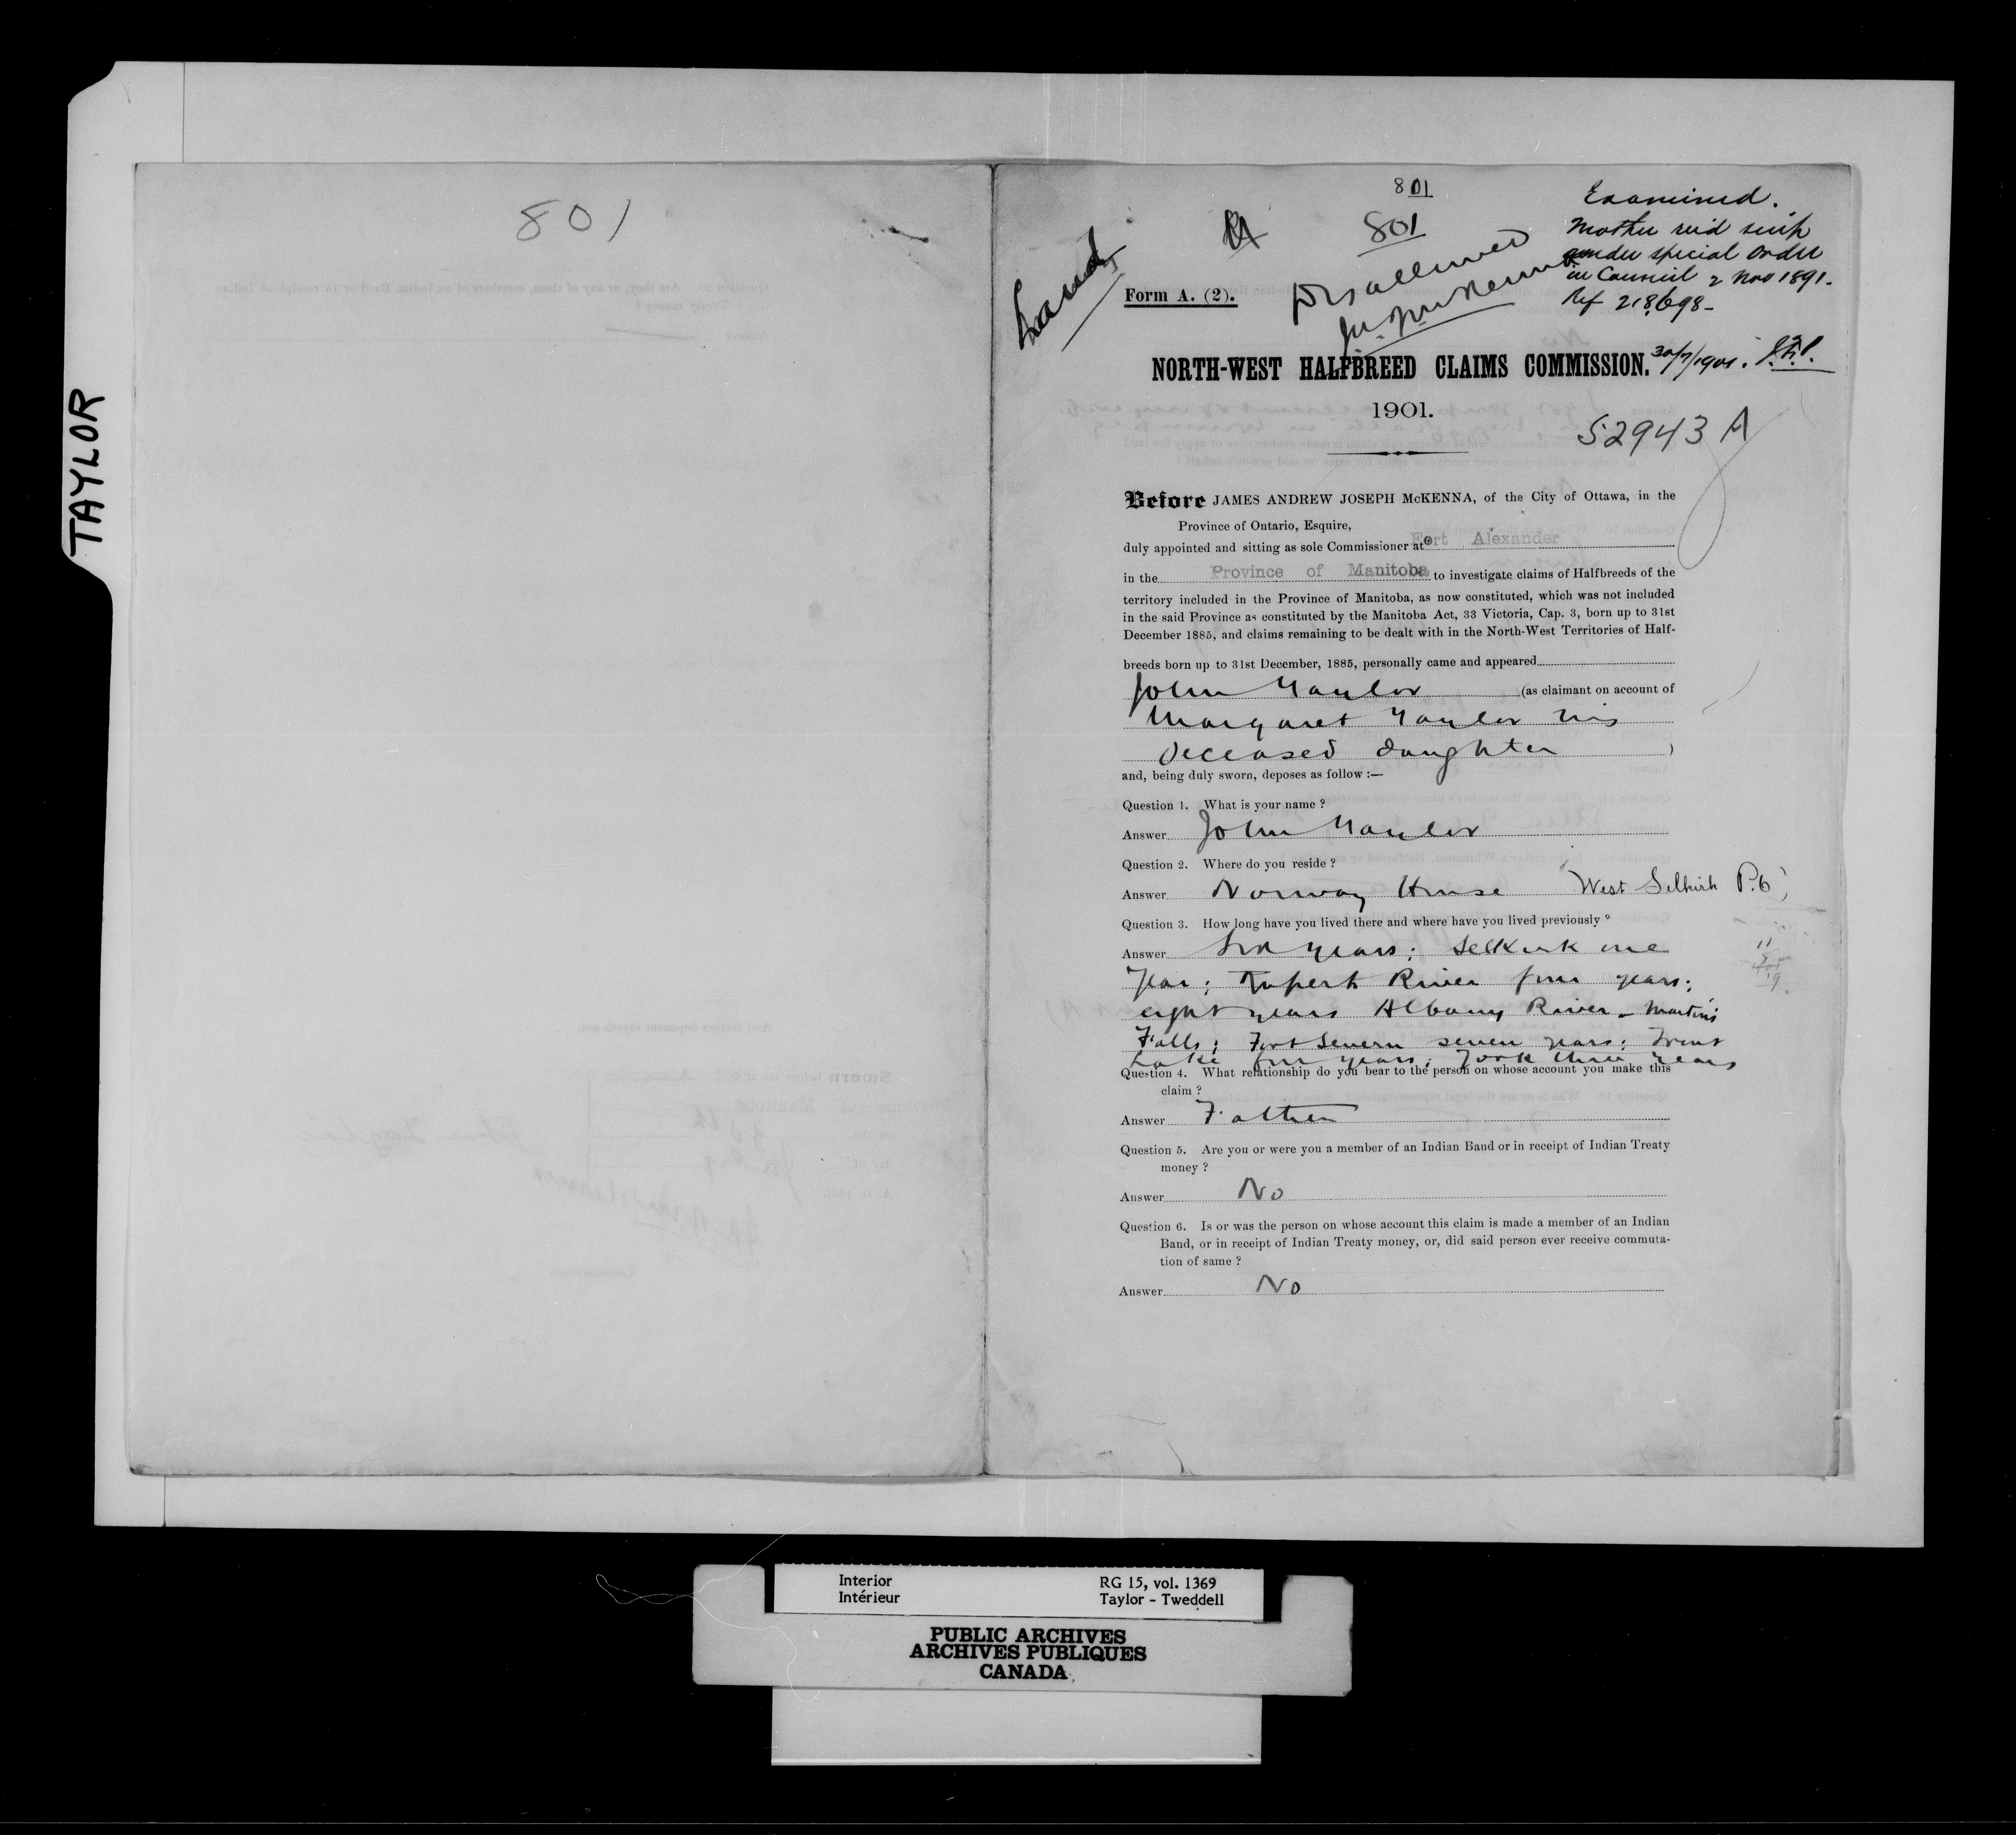 TAYLOR
801
801
801
Land
Examined.
Mother rec'd scrip
under special Order
in Council 2 Nov 1891.
Ref 218,698-
Disallowed
Form A. (2).
NORTH-WEST HALFBREED CLAIMS COMMISSION.
1901.
52943 A
Before JAMES ANDREW JOSEPH McKENNA, of the City of Ottawa, in the
Province of Ontario, Esquire,
duly appointed and sitting as sole Commissioner at Fort Alexander
in the Province of Manitoba to investigate claims of Halfbreeds of the
territory included in the Province of Manitoba, as now constituted, which was not included
in the said Province as constituted by the Manitoba Act, 33 Victoria, Cap. 3, born up to 31st
December 1885, and claims remaining to be dealt with in the North-West Territories of Half-
breeds born up to 31st December, 1885, personally came and appeared
John Taylor (as claimant on account of
Margaret Taylor his
deceased daughter )
and, being duly sworn, deposes as follow :—
Question 1. What is your name ?
Answer John Taylor
Question 2. Where do you reside ?
Answer Norway House West Selkirk P.O.
Question 3. How long have you lived there and where have you lived previously ?
Answer Six years; Selkirk one
year; Rupert River four years;
eight years Albany River - Martin's
Falls; Fort Severn seven years; Trout
Lake four years; York three years
Question 4. What relationship do you bear to the person on whose account you make this
claim ?
Answer Father
Question 5. Are you or were you a member of an Indian Band or in receipt of Indian Treaty
money ?
Answer No
Question 6. Is or was the person on whose account this claim is made a member of an Indian
Band, or in receipt of Indian Treaty money, or, did said person ever receive commuta-
tion of same ?
Answer No
Interior RG 15, vol. 1369
Intérieur Taylor - Tweddell
PUBLIC ARCHIVES
ARCHIVES PUBLIQUES
CANADA